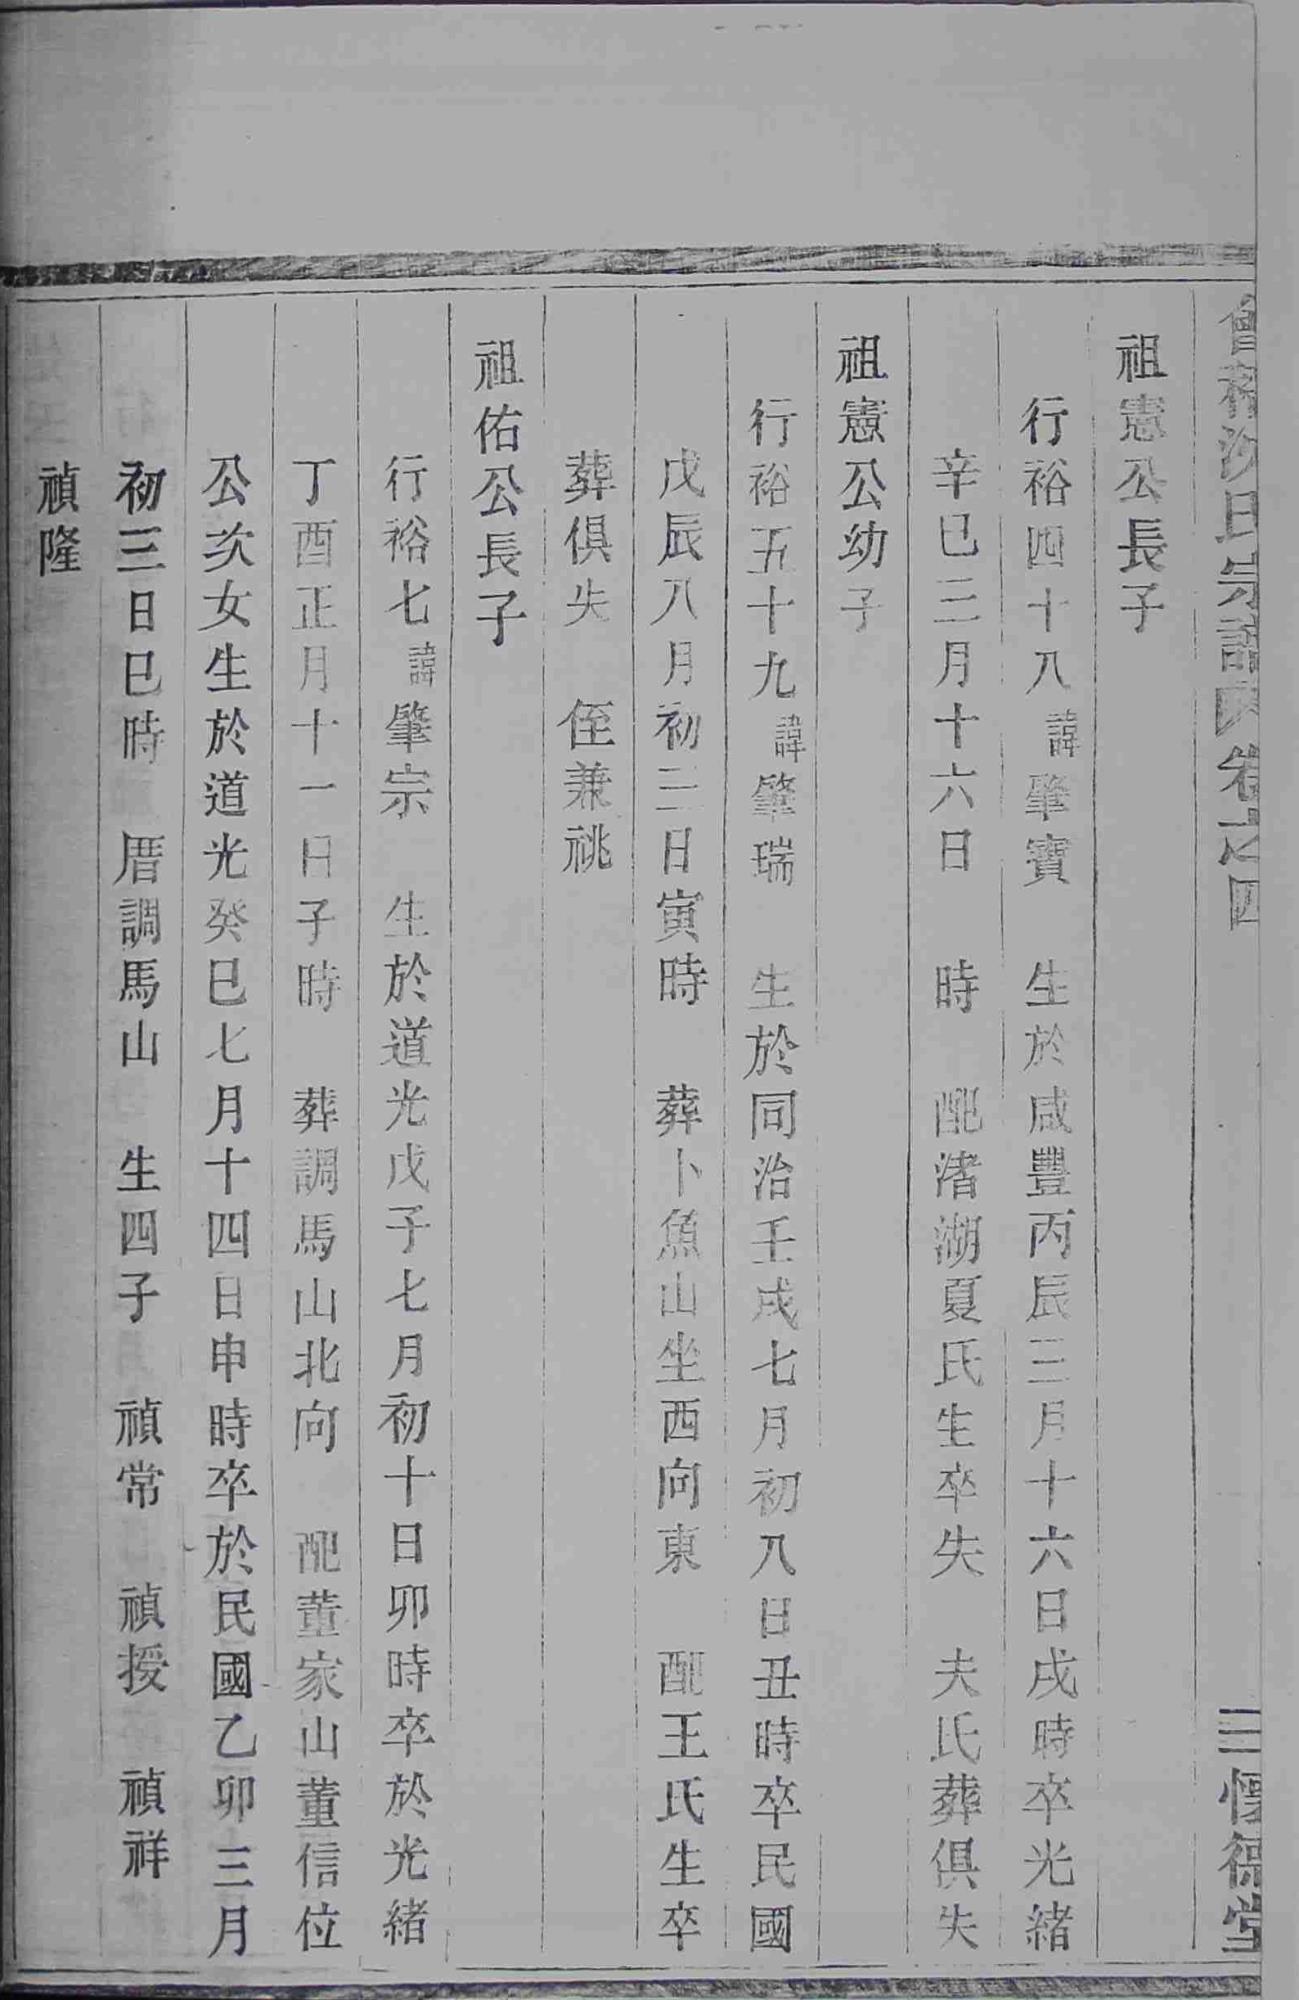 會稽沈氏宗譜 卷之四 三 懷德堂
祖憲公長子
行裕四十八諱肇寶 生於咸豐丙辰三月十六日戌時卒光緒
辛巳三月十六日 時 配渚湖夏氏生卒失 夫氏葬俱失
祖憲公幼子
行裕五十九諱肇瑞 生於同治壬戌七月初八日丑時卒民國
戊辰八月初三日寅時 葬卜魚山坐西向東 配王氏生卒
葬俱失 侄兼祧
祖佑公長子
行裕七諱肇宗 生於道光戊子七月初十日卯時卒於光緒
丁酉正月十一日子時 葬調馬山北向 配董家山董信位
公次女生於道光癸巳七月十四日申時卒於民國乙卯三月
初三日巳時 厝調馬山 生四子 禎常 禎授 禎祥
禎隆